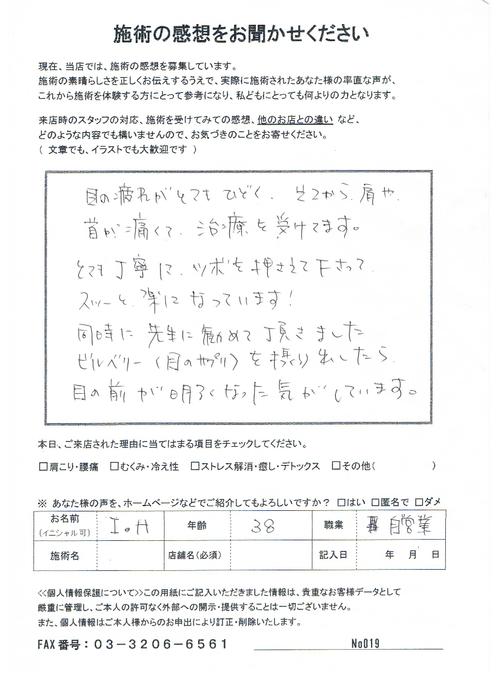 施術の感想をお聞かせください
現在、当店では、施術の感想を募集しています。
施術の素晴らしさを正しくお伝えするうえで、実際に施術されたあなた様の率直な声が、
これから施術を体験する方にとって参考になり、私どもにとっても何よりの力となります。
来店時のスタッフの対応、施術を受けてみての感想、他のお店との違い など、
どのような内容でも構いませんので、お気づきのことをお寄せください。
( 文章でも、イラストでも大歓迎です )
目の疲れがとてもひどく、そこから、肩や、
首が痛くて、治療を受けてます。
とても丁寧に、ツボを押さえて下さって、
スッーと、楽になっています!
同時に先生に勧めて頂きました
ビルベリー(目のサプリ)を摂り出したら、
目の前が明るくなった気がしています。
本日、ご来店された理由に当てはまる項目をチェックしてください。
□肩こり・腰痛 □むくみ・冷え性 □ストレス解消・癒し・デトックス □その他( )
※ あなた様の声を、ホームページなどでご紹介してもよろしいですか? □はい □匿名で □ダメ
お名前 (イニシャル可) I.H 年齢 38 職業 自営業
施術名 店舗名(必須) 記入日 年 月 日
<<個人情報保護について>>この用紙にご記入いただきました情報は、貴重なお客様データとして
厳重に管理し、ご本人の許可なく外部への開示・提供することは一切ございません。
また、個人情報はご本人様からのお申出により訂正・削除いたします。
FAX 番号:03-3206-6561 No019